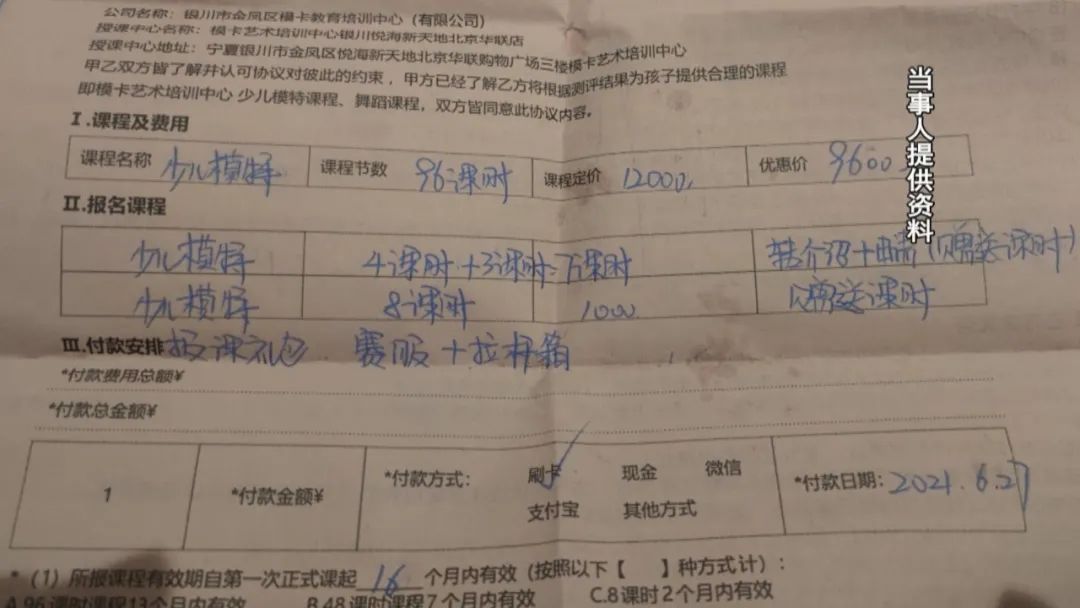 公司名称：银川市金凤区模卡教育培训中心（有限公司）
授课中心名称：模卡艺术培训中心银川悦海新天地北京华联店
授课中心地址：宁夏银川市金凤区悦海新天地北京华联购物广场三楼模卡艺术培训中心
甲乙双方皆了解并认可协议对彼此的约束，甲方已经了解乙方将根据测评结果为孩子提供合理的课程
即模卡艺术培训中心 少儿模特课程、舞蹈课程，双方皆同意此协议内容。
当事人提供资料
I.课程及费用
课程名称 少儿模特 课程节数 96课时 课程定价 12000. 优惠价 9600
II.报名课程
少儿模特 4课时+3课时= 课时 转介绍+ 赠送课时
少儿模特 8课时 1000 赠送课时
III.付款安排 报课礼包 赛服+拉杆箱
*付款费用总额¥
*付款总金额¥
1 *付款金额¥ *付款方式： 刷卡 现金 微信 *付款日期：2021.6.27
支付宝 其他方式
*（1）所报课程有效期自第一次正式课起 16 个月内有效（按照以下【 】种方式计）：
A.96课时课程13个月内有效 B.48课时课程7个月内有效 C.8课时2个月内有效